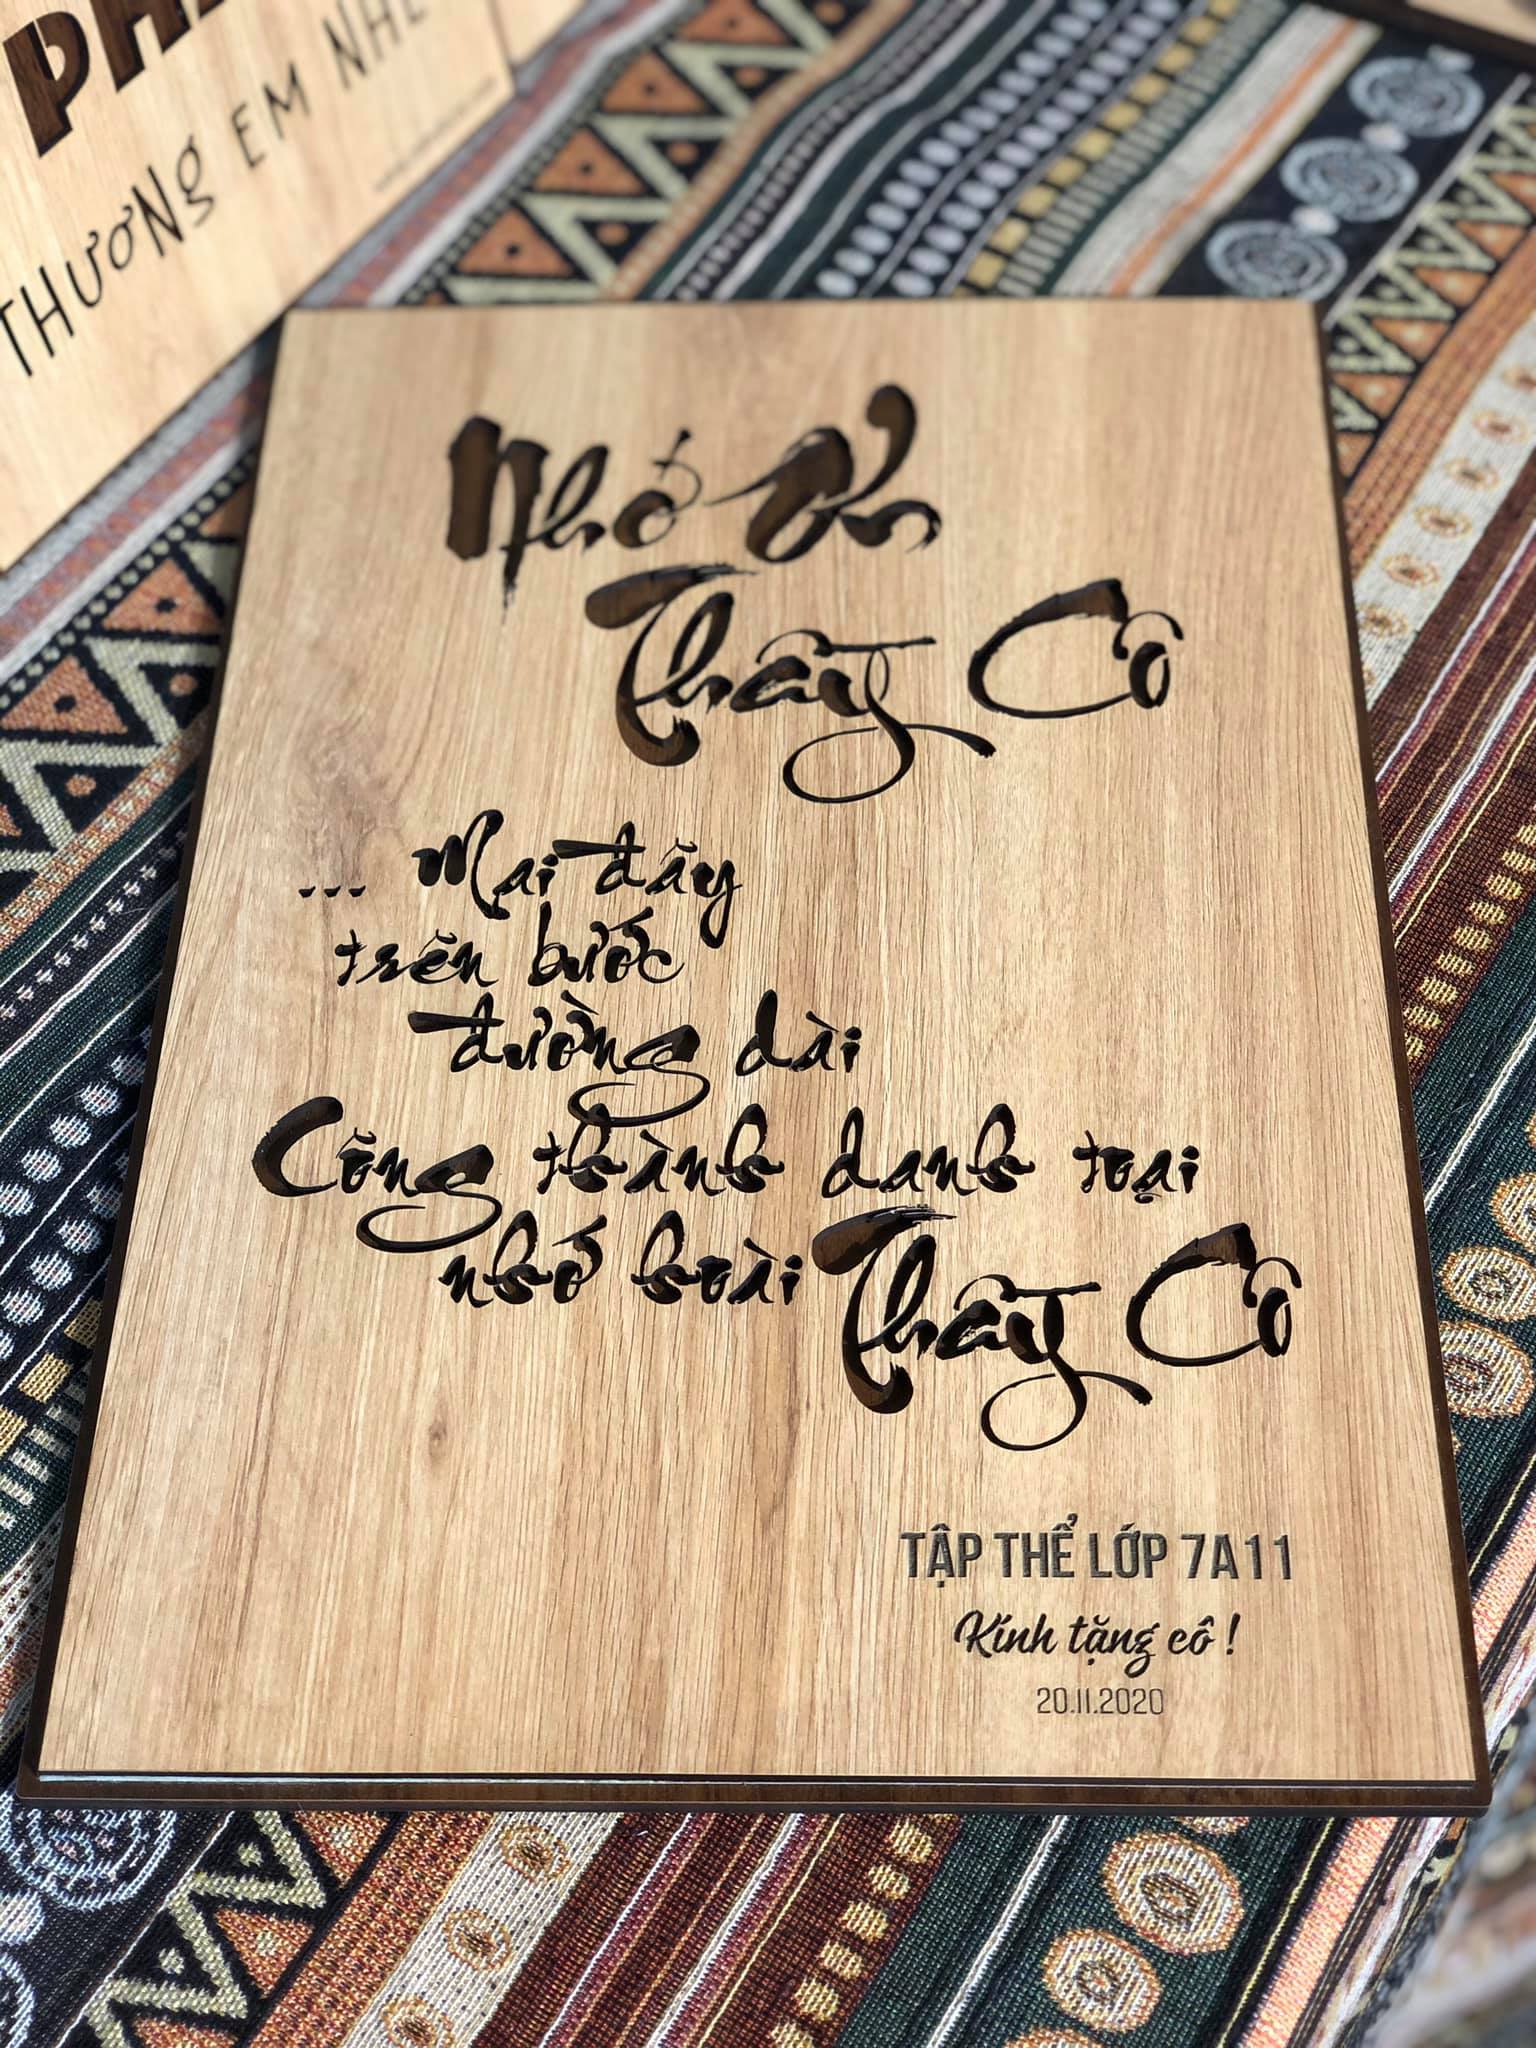 THƯƠNG EM NHÉ
Nhớ Ơn
Thầy Cô
... Mai đây
trên bước
đường dài
Công thành danh toại
nhớ hoài Thầy Cô
TẬP THỂ LỚP 7A11
Kính tặng cô !
20.11.2020